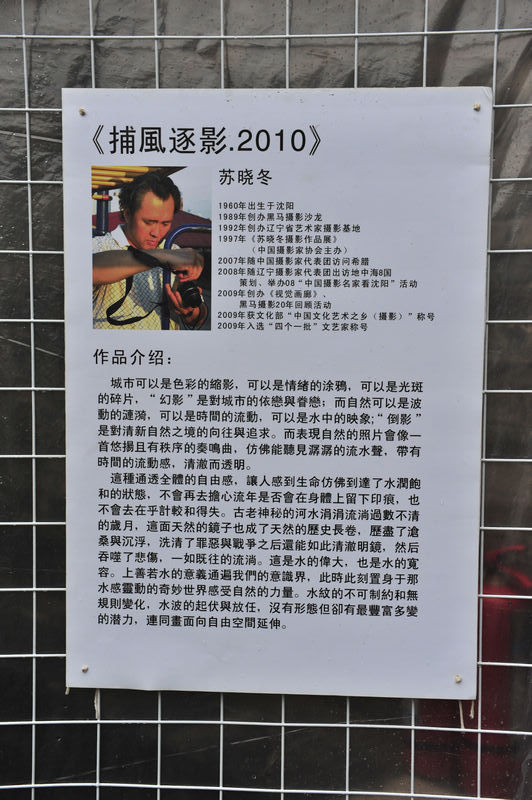 《捕風逐影.2010》
苏晓冬
1960年出生于沈阳
1989年创办黑马摄影沙龙
1992年创办辽宁省艺术家摄影基地
1997年《苏晓冬摄影作品展》
（中国摄影家协会主办）
2007年随中国摄影家代表团访问希腊
2008年随辽宁摄影家代表团出访地中海8国
策划、举办08“中国摄影名家看沈阳”活动
2009年创办《视觉画廊》、
黑马摄影20年回顾活动
2009年获文化部“中国文化艺术之乡（摄影）”称号
2009年入选“四个一批”文艺家称号
作品介绍：
城市可以是色彩的縮影，可以是情緒的涂鴉，可以是光斑
的碎片，“幻影”是對城市的依戀與眷戀；而自然可以是波
動的漣漪，可以是時間的流動，可以是水中的映象；“倒影”
是對清新自然之境的向往與追求。而表現自然的照片會像一
首悠揚且有秩序的奏鳴曲，仿佛能聽見潺潺的流水聲，帶有
時間的流動感，清澈而透明。
這種通透全體的自由感，讓人感到生命仿佛到達了水潤飽
和的狀態，不會再去擔心流年是否會在身體上留下印痕，也
不會去在乎計較和得失。古老神秘的河水涓涓流淌過數不清
的歲月，這面天然的鏡子也成了天然的歷史長卷，歷盡了滄
桑與沉浮，洗清了罪惡與戰爭之后還能如此清澈明鏡，然后
吞噬了悲傷，一如既往的流淌。這是水的偉大，也是水的寬
容。上善若水的意義通遍我們的意識界，此時此刻置身于那
水感靈動的奇妙世界感受自然的力量。水紋的不可制約和無
規則變化，水波的起伏與放任，沒有形態但卻有最豐富多變
的潛力，連同畫面向自由空間延伸。